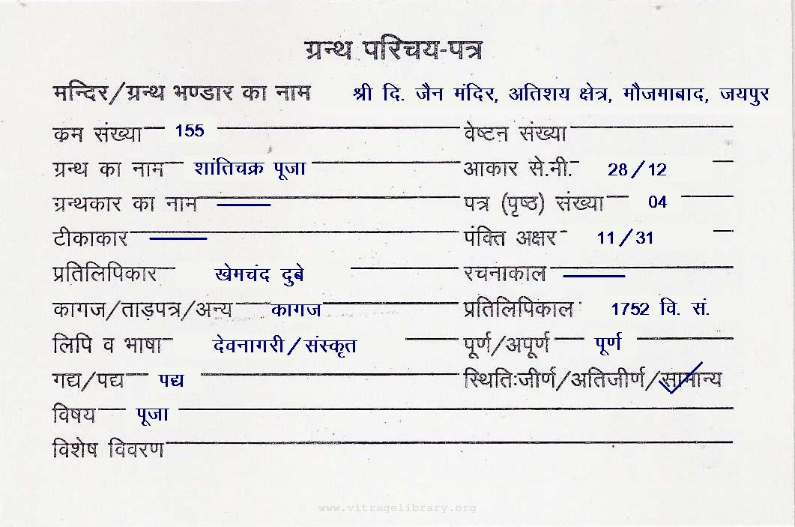 ग्रन्थ परिचय-पत्र
मन्दिर/ग्रन्थ भण्डार का नाम श्री दि. जैन मंदिर, अतिशय क्षेत्र, मौजमाबाद, जयपुर
कम संख्या 155 वेष्टन संख्या
ग्रन्थ का नाम शांतिचक्र पूजा आकार से.नी. 28/12
ग्रन्थकार का नाम पत्र (पृष्ठ) संख्या 04
टीकाकार पंक्ति अक्षर 11/31
प्रतिलिपिकार खेमचंद दुबे रचनाकाल
कागज/ताड़पत्र/अन्य कागज प्रतिलिपिकाल 1752 वि. सं.
लिपि व भाषा देवनागरी/संस्कृत पूर्ण/अपूर्ण पूर्ण
गद्य/पद्य पद्य स्थितिःजीर्ण/अतिजीर्ण/सामान्य
विषय पूजा
विशेष विवरण
www.vitragelibrary.org